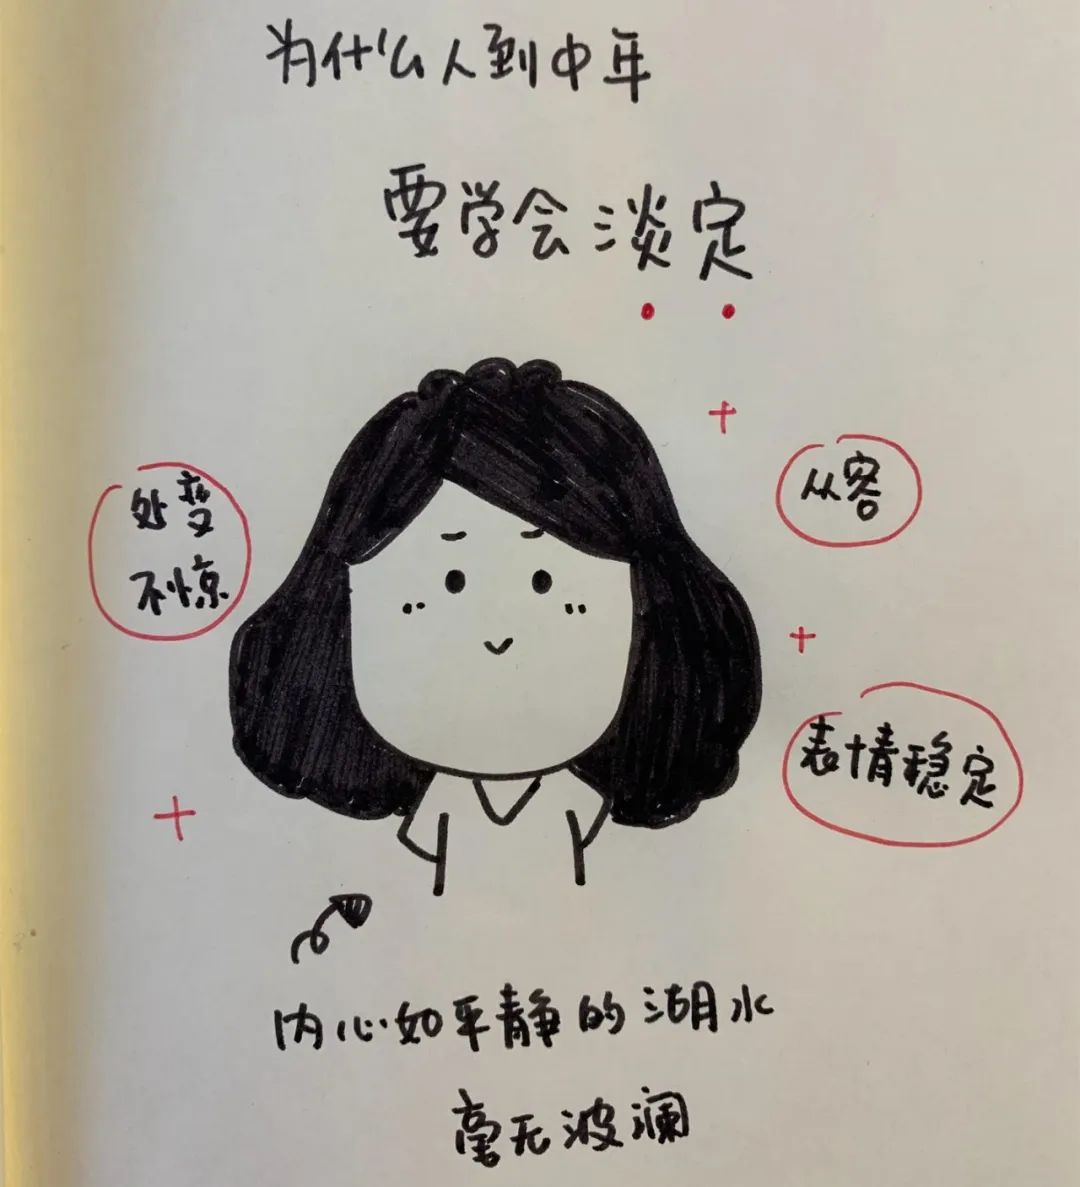 为什么人到中年
要学会淡定
从容
处变
不惊
表情稳定
内心如平静的湖水
毫无波澜